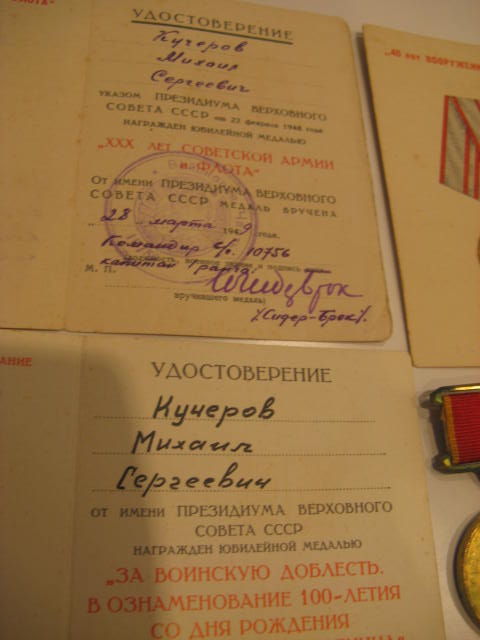 ФЛОТА"
УДОСТОВЕРЕНИЕ
Кучеров
Михаил
Сергеевич
УКАЗОМ ПРЕЗИДИУМА ВЕРХОВНОГО
СОВЕТА СССР от 22 февраля 1948 года
НАГРАЖДЕН ЮБИЛЕЙНОЙ МЕДАЛЬЮ
„XXX ЛЕТ СОВЕТСКОЙ АРМИИ
и ФЛОТА"
От имени ПРЕЗИДИУМА ВЕРХОВНОГО
СОВЕТА СССР МЕДАЛЬ ВРУЧЕНА
„28" марта 1949 года.
Командир с/ч. 10756
должность, военное звание и подпись
капитан
М. П.
вручившего медаль
(Сидер-Брок).
„40 лет ВООРУЖЕНН
УДОСТОВЕРЕНИЕ
Кучеров
Михаил
Сергеевич
ОТ ИМЕНИ ПРЕЗИДИУМА ВЕРХОВНОГО
СОВЕТА СССР
НАГРАЖДЕН ЮБИЛЕЙНОЙ МЕДАЛЬЮ
„ЗА ВОИНСКУЮ ДОБЛЕСТЬ.
В ОЗНАМЕНОВАНИЕ 100-ЛЕТИЯ
СО ДНЯ РОЖДЕНИЯ